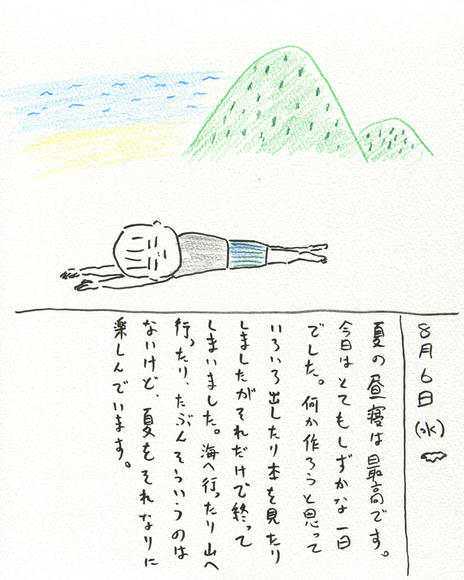 8月6日(水)
夏の昼寝は最高です。
今日はとてもしずかな一日
でした。何か作ろうと思って
いろいろ出したり本を見たり
しましたがそれだけで終って
しまいました。海へ行ったり山へ
行ったり、たぶんそういうのは
ないけど、夏をそれなりに
楽しんでいます。